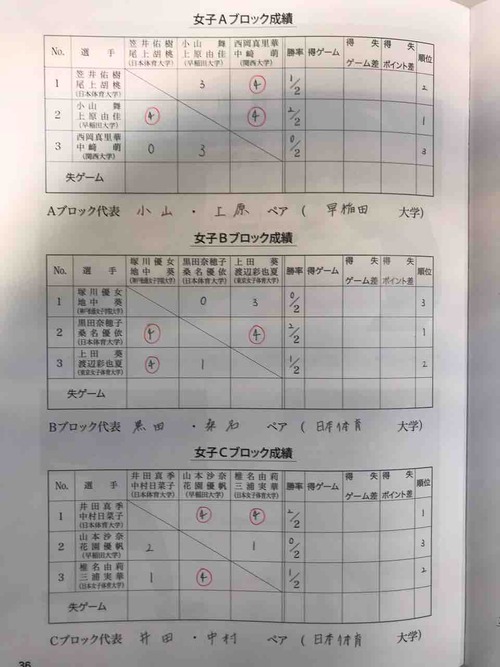 女子Aブロック成績
No. 選手 笠井佑樹 尾上胡桃 (日本体育大学) 小山舞 上原由佳 (早稲田大学) 西岡真里華 中﨑萌 (関西大学) 勝率 得ゲーム 得失ゲーム差 得失ポイント差 順位
1 笠井佑樹 尾上胡桃 (日本体育大学) 3 ④ 1/2 2
2 小山舞 上原由佳 (早稲田大学) ④ ④ 2/2 1
3 西岡真里華 中﨑萌 (関西大学) 0 3 0/2 3
失ゲーム
Aブロック代表 小山・上原 ペア (早稲田 大学)
女子Bブロック成績
No. 選手 塚川優女 地中葵 黒田奈穂子 桑名優依 (日本体育大学) 上田葵 渡辺彩也夏 (東京女子体育大学) 勝率 得ゲーム 得失ゲーム差 得失ポイント差 順位
1 塚川優女 地中葵 0 3 0/2 3
2 黒田奈穂子 桑名優依 (日本体育大学) ④ ④ 2/2 1
3 上田葵 渡辺彩也夏 (東京女子体育大学) ④ 1 1/2 2
失ゲーム
Bブロック代表 黒田・桑名 ペア (日本体育 大学)
女子Cブロック成績
No. 選手 井田真季 中村日菜子 (日本体育大学) 山本沙奈 花園優帆 (早稲田大学) 椎名由莉 三浦実華 (日本女子体育大学) 勝率 得ゲーム 得失ゲーム差 得失ポイント差 順位
1 井田真季 中村日菜子 (日本体育大学) ④ ④ 2/2 1
2 山本沙奈 花園優帆 (早稲田大学) 2 1 0/2 3
3 椎名由莉 三浦実華 (日本女子体育大学) 1 ④ 1/2 2
失ゲーム
Cブロック代表 井田・中村 ペア (日本体育 大学)
36